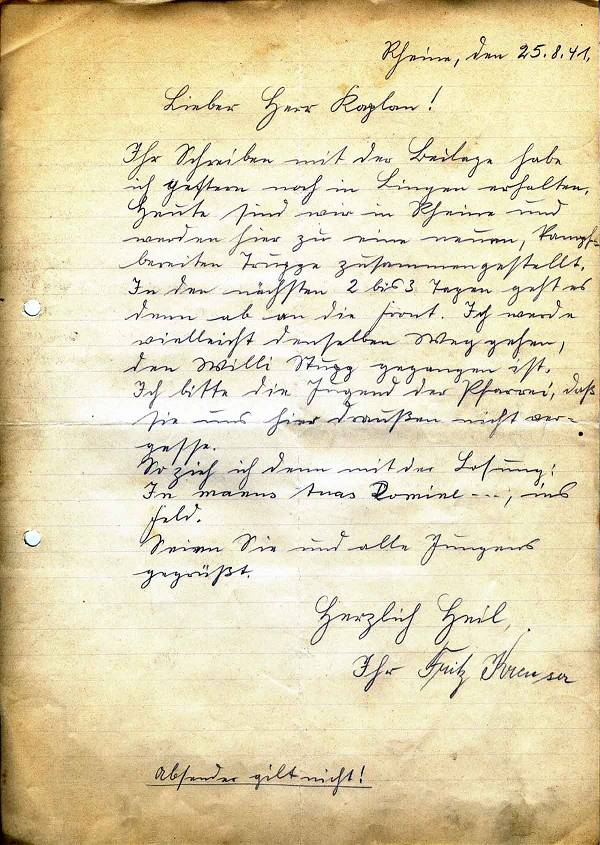 Rheine, den 25.8.41.
Lieber Herr Kaplan!
Ihr Schreiben mit der Beilage habe
ich gestern noch in Lingen erhalten.
Heute sind wir in Rheine und
werden hier zu eine neuen, kampf-
bereiten Truppe zusammengestellt.
In den nächsten 2 bis 3 Tagen geht es
denn ab an die Front. Ich werde
vielleicht denselben Weg gehen,
den Willi Stupp gegangen ist.
Ich bitte die Jugend der Pfarrei, daß
sie uns hier draußen nicht ver-
gesse.
So zieh ich denn mit der Losung:
In manus tuas Domine ---, ins
Feld.
Seien Sie und alle Jungens
gegrüßt.
Herzlich Heil,
Ihr Fritz
Absender gilt nicht!